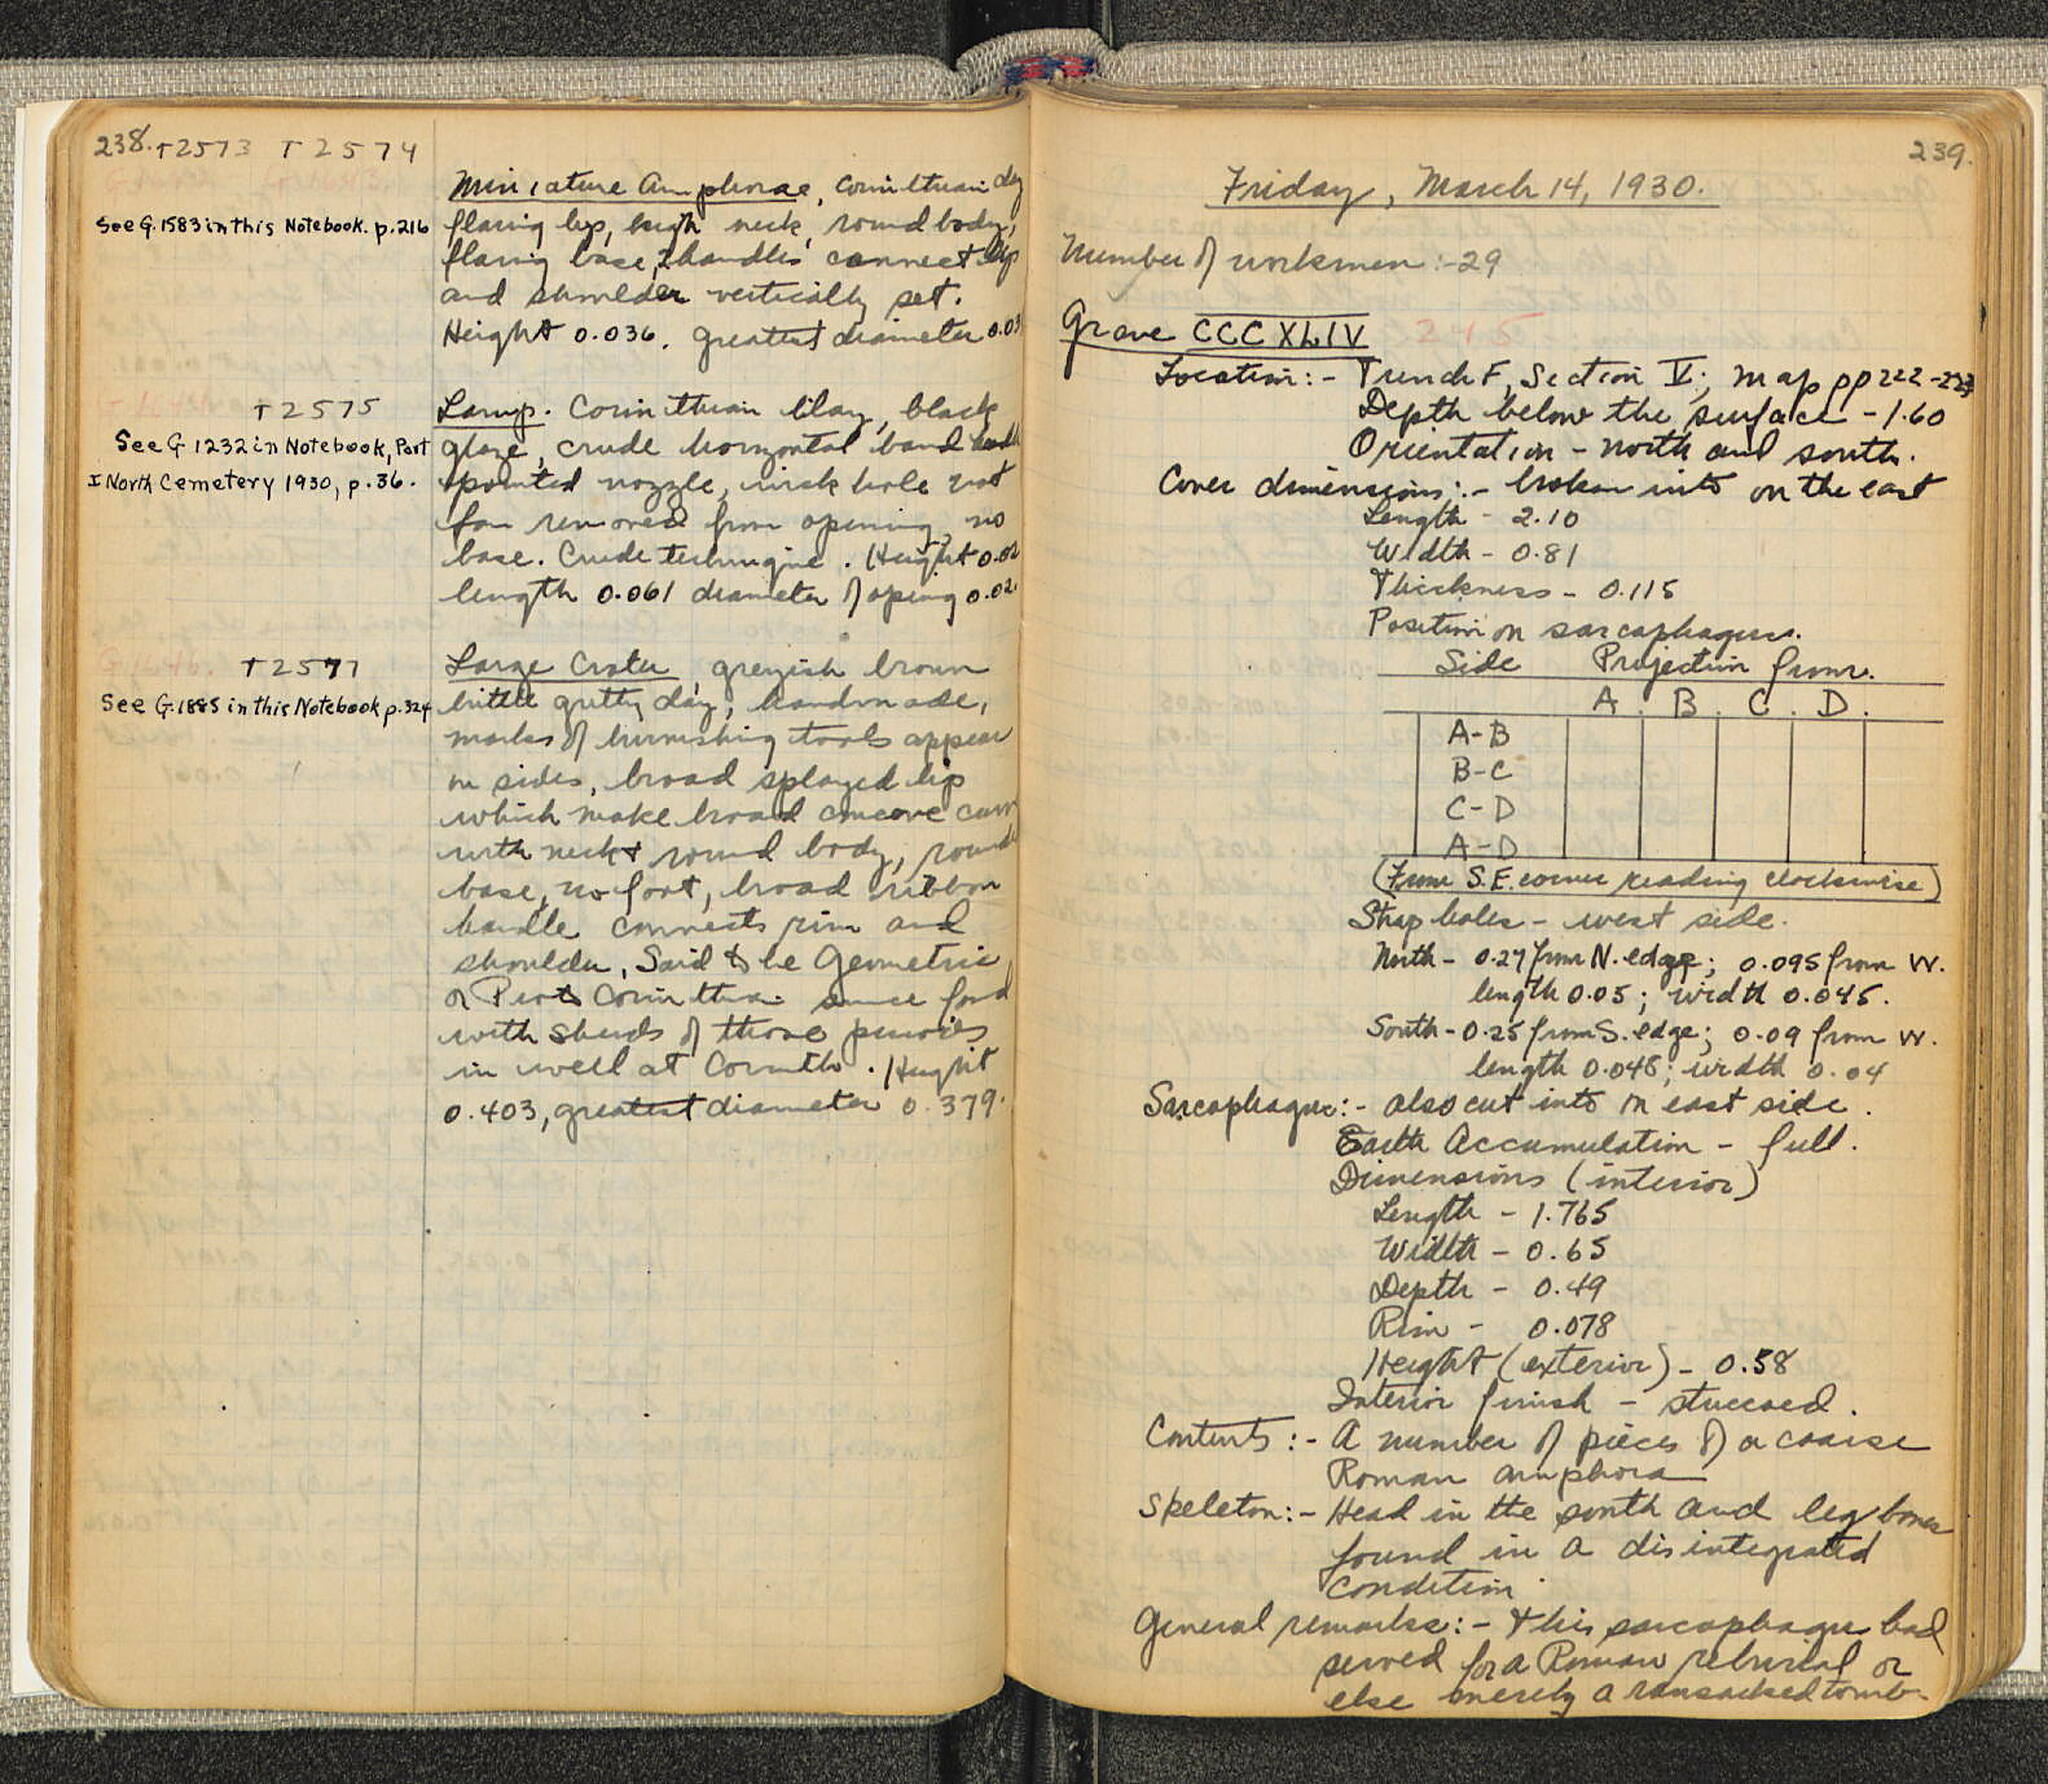 238. T2573 T 2574
Miniature Amphorae, Corinthian clay
See G.1583 in this Notebook. p.216
flaring lip, high neck, round body,
flaring base, 2 handles connect lip
and shoulder vertically set.
Height 0.036. greatest diameter 0.03
T 2575
Lamp. Corinthian clay, black
See G 1232 in Notebook, Part
glaze, crude horizontal band handle
I North Cemetery 1930, p.36.
pointed nozzle, wick hole not
far removed from opening, no
base. Crude technique. Height 0.02
length 0.061 diameter of opening 0.02
G 1646. T 2577
Large Crater, greyish brown
See G.1885 in this Notebook p.324
brittle gritty clay, handmade,
marks of burnishing tools appear
on sides, broad splayed lip
which make broad concave curve
with neck round body, round
base, no foot, broad ribbon
handle connects rim and
shoulder, Said to be Geometric
or Proto Corinthian since found
with sherds of those periods
in well at Corinth. Height
0.403, greatest diameter 0.379.
239.
Friday, March 14, 1930.
Number of workmen:-29
Grave CCCXLIV 245
Location:- Trench F, Section V; map pp 222-223
Depth below the surface - 1.60
Orientation - north and south.
Cover dimensions:- broken into on the east
Length - 2.10
Width - 0.81
Thickness - 0.115
Position on sarcophagus.
Side Projection from.
A. B. C. D.
A-B
B-C
C-D
A-D
(From S.E. corner reading clockwise)
Strap holes - west side.
North - 0.27 from N. edge; 0.095 from W.
length 0.05; width 0.045.
South - 0.25 from S. edge; 0.09 from W.
length 0.048; width 0.04
Sarcophagus:- also cut into on east side.
Earth Accumulation - full.
Dimensions (interior)
Length - 1.765
Width - 0.65
Depth - 0.49
Rim - 0.078
Height (exterior) - 0.58
Interior finish - stuccoed.
Contents:- A number of pieces of a coarse
Roman amphora
Skeleton:- Head in the south and leg bones
found in a disintegrated
condition.
General remarks:- This sarcophagus had
served for a Roman reburial or
else merely a ransacked tomb.